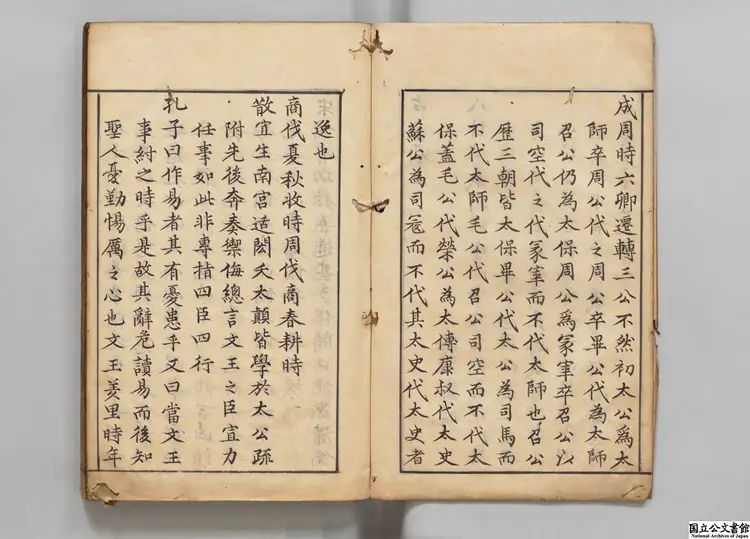 成周時六卿遷轉三公不然初太公爲太
師卒周公代之周公卒畢公代為太師
召公仍為太保周公爲冢宰卒召公以
司空代之代冢宰而不代太師也召公
歴三朝皆太保畢公代太公為司馬而
不代太師毛公代召公司空而不代太
保蓋毛公代榮公為太傅康叔代太史
蘇公為司寇而不代其太史代太史者
逸也
商伐夏秋收時周伐商春耕時
散宜生南宮适閎夭太顛皆學於太公疏
附先後奔奏禦侮總言文王之臣宣力
任事如此非專指四臣四行
孔子曰作易者其有憂患乎又曰當文王
事紂之時乎是故其辭危讀易而後知
聖人憂勤惕厲之心也文王羑里時年
国立公文書館
National Archives of Japan